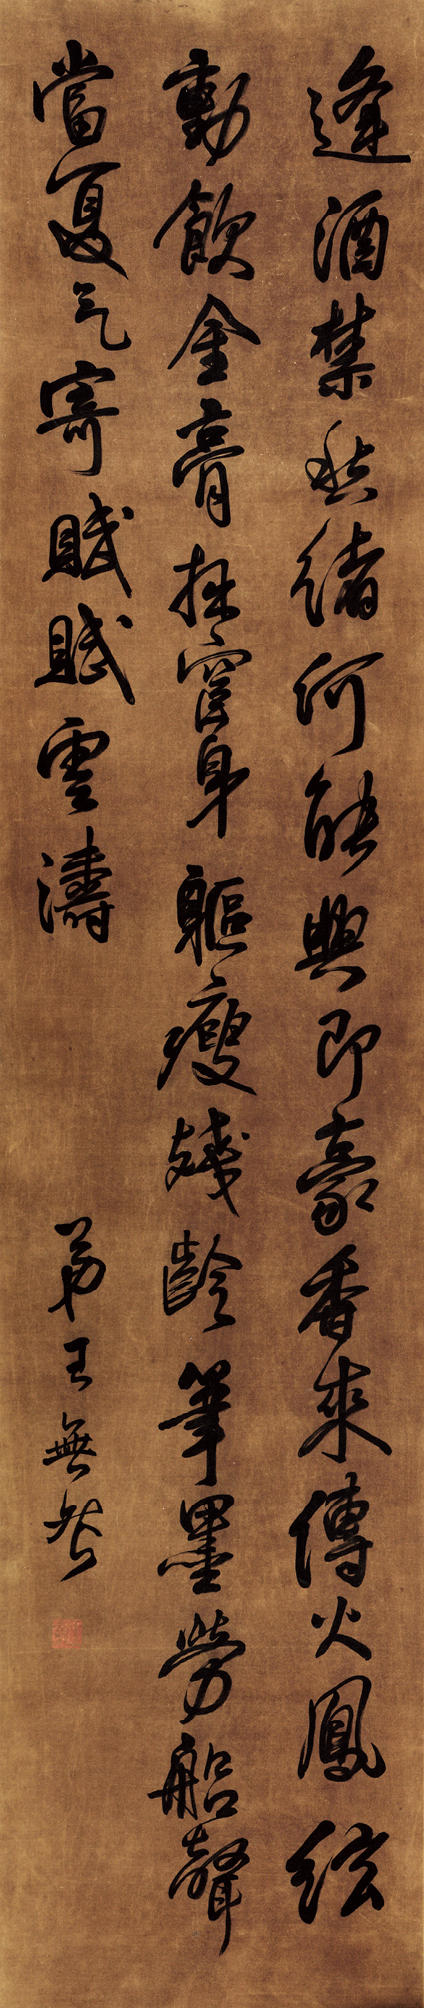 逢酒禁愁緒何能興即豪香來傳火鳳絃
動飲金膏拙宦身軀瘦殘齡筆墨勞船聲
當夏氣寄賦賦雲濤
弟王無咎